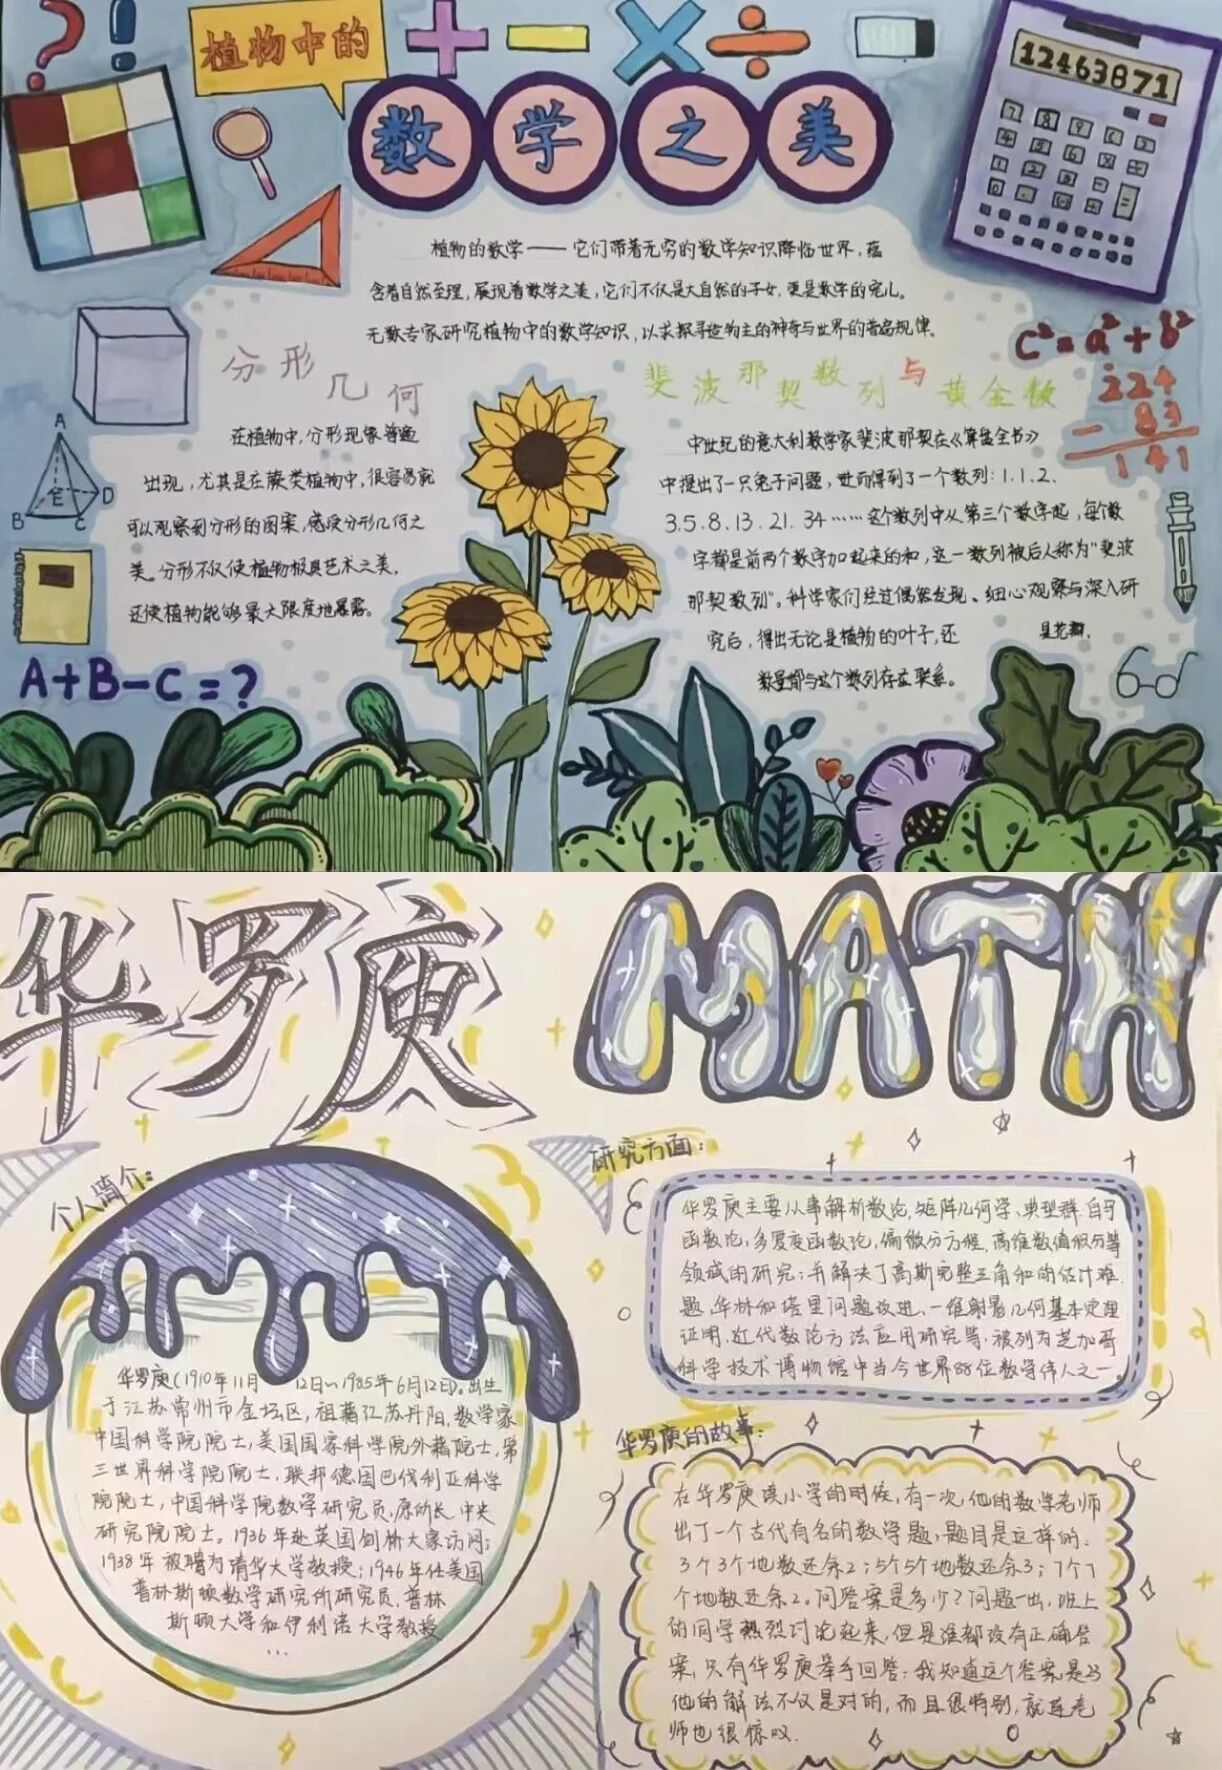 植物中的
数学之美
12463871
植物的数学——它们带着无穷的数学知识降临世界，蕴
含着自然至理，展现着数学之美，它们不仅是大自然的子女，更是数学的宠儿。
无数专家研究植物中的数学知识，以求探寻造物主的神奇与世界的普遍规律。
c²=a²+b²
224
-83
141
分形几何
在植物中，分形现象普遍
出现，尤其是在蕨类植物中，很容易就
可以观察到分形的图案，感受分形几何之
美。分形不仅使植物极具艺术之美，
还使植物能够最大限度地暴露。
A
B
C
D
E
A+B-C=?
斐波那契数列与黄金数
中世纪的意大利数学家斐波那契在《算盘全书》
中提出了一只兔子问题，进而得到了一个数列：1.1.2.
3.5.8.13.21.34……这个数列中从第三个数字起，每个数
字都是前两个数字加起来的和，这一数列被后人称为“斐波
那契数列”。科学家们经过偶然发现、细心观察与深入研
究后，得出无论是植物的叶子，还是花瓣，
数量都与这个数列存在联系。
华罗庚
MATH
个人简介：
华罗庚(1910年11月12日~1985年6月12日)。出生
于江苏常州市金坛区，祖籍江苏丹阳，数学家
中国科学院院士，美国国家科学院外籍院士，第
三世界科学院院士，联邦德国巴伐利亚科学
院院士，中国科学院数学研究员，原所长，中央
研究院院士。1936年赴英国剑桥大家访问；
1938年被聘为清华大学教授；1946年任美国
普林斯顿数学研究所研究员，普林
斯顿大学和伊利诺大学教授
...
研究方面：
华罗庚主要从事解析数论，矩阵几何学、典型群 自守
函数论，多复变函数论，偏微分方程，高维数值积分等
领域的研究；并解决了高斯完整三角和的估计难
题，华林和塔里问题改进，一维射影几何基本定理
证明，近代数论方法应用研究等，被列为芝加哥
科学技术博物馆中当今世界88位数学伟人之一。
华罗庚的故事：
在华罗庚读小学的时候，有一次他的数学老师
出了一个古代有名的数学题，题目是这样的：
3个3个地数还余2；5个5个地数还余3；7个7
个地数还余2。问答案是多少？问题一出，班上
的同学热烈讨论起来，但是谁都没有正确答
案，只有华罗庚举手回答：我知道这个答案是23
他的解法不仅是对的，而且很特别，就连老
师也很惊叹.